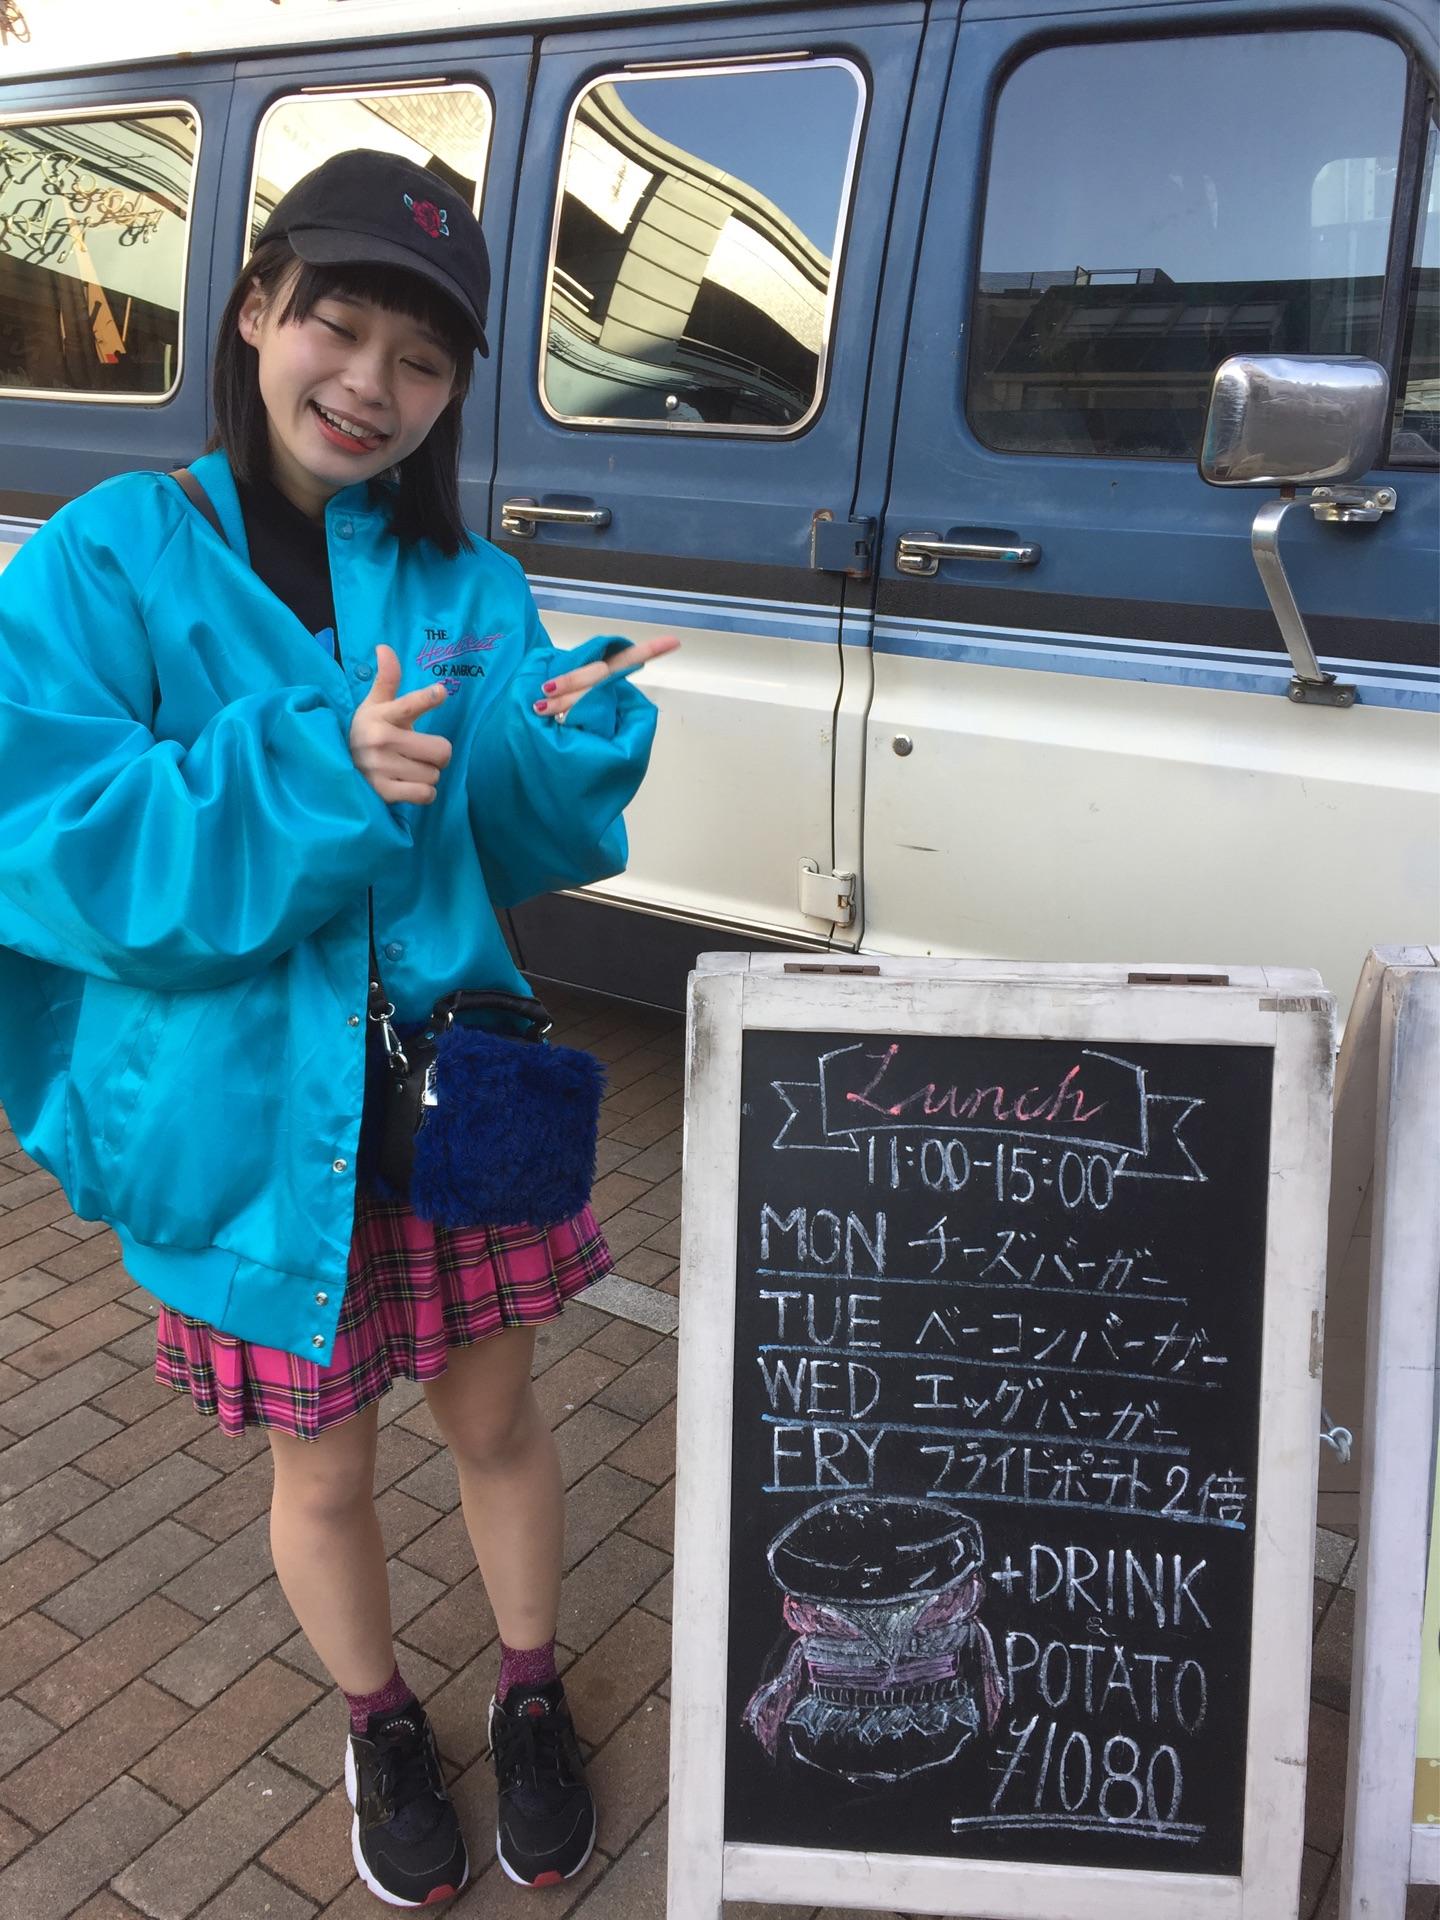 THE
Heartbeat
OF AMERICA
Lunch
11:00-15:00
MON チーズバーガー
TUE ベーコンバーガー
WED エッグバーガー
FRY フライドポテト2倍
+DRINK
&
POTATO
¥1080